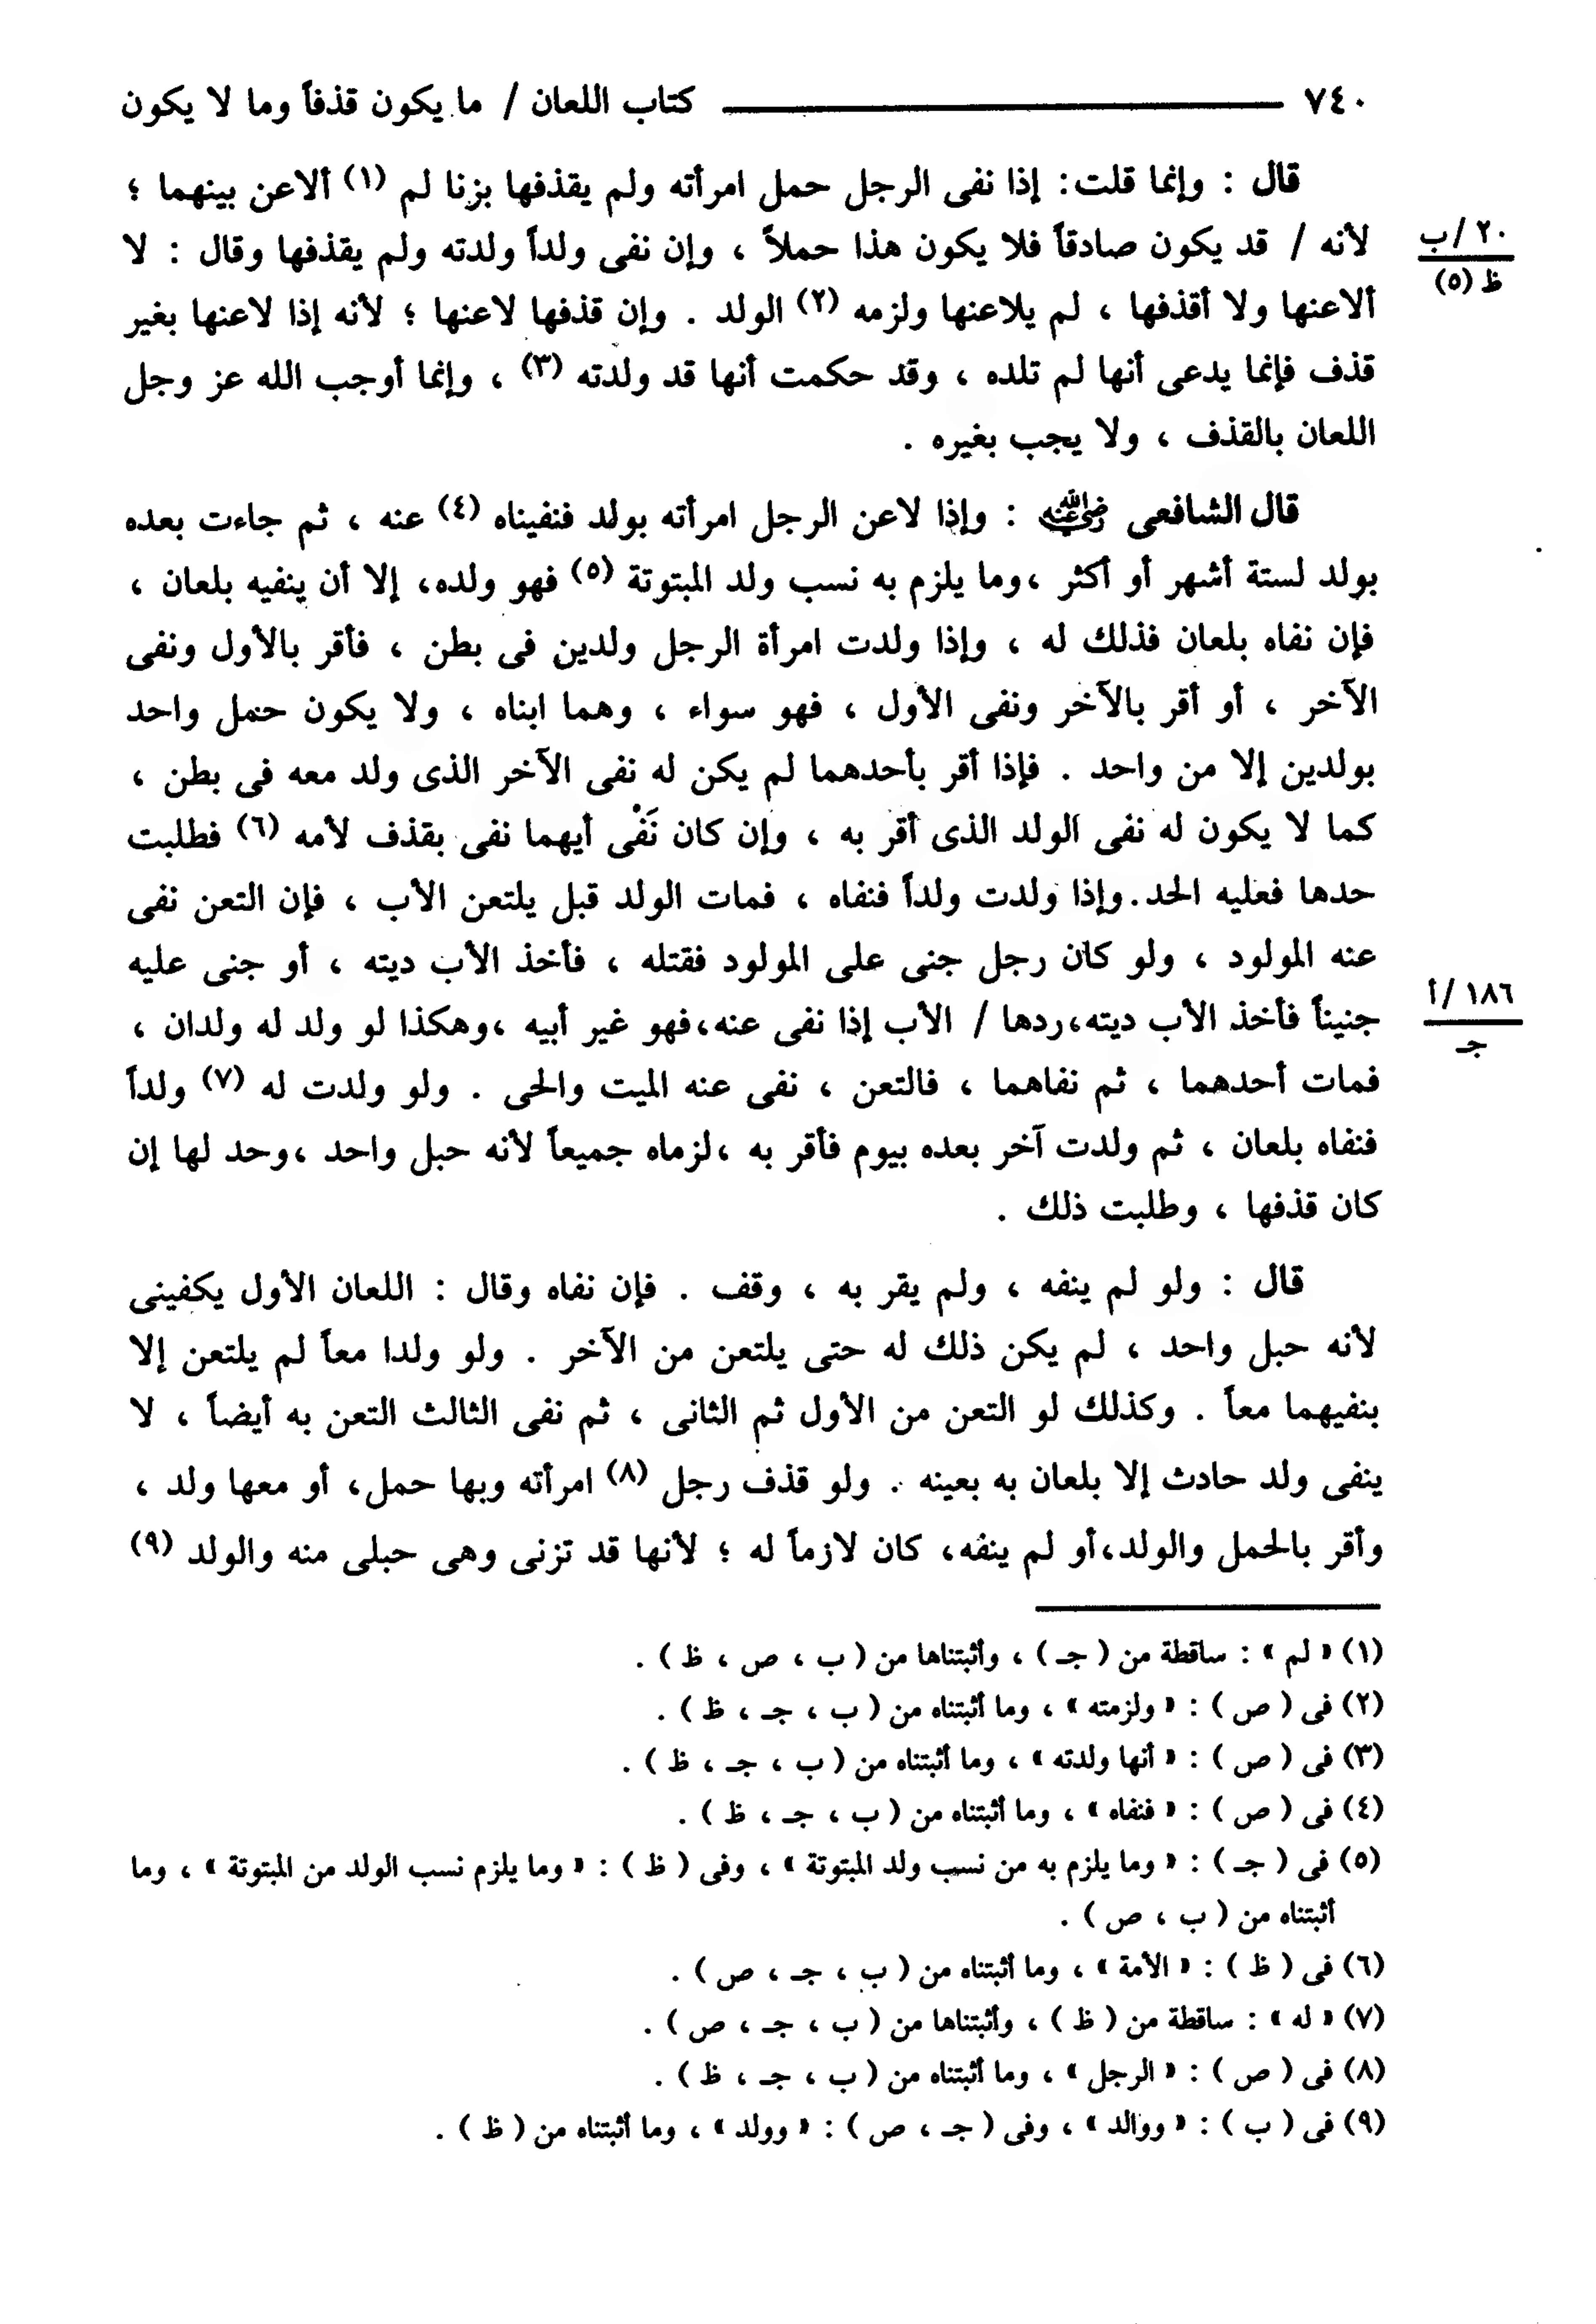 ٧٤٠ ـــــــــــــــــــــــــــــ كتاب اللعان / ما يكون قذفاً وما لا يكون
قال : وإنما قلت: إذا نفى الرجل حمل امرأته ولم يقذفها بزنا لم (١) ألاعن بينهما ؛
لأنه / قد يكون صادقاً فلا يكون هذا حملاً ، وإن نفى ولداً ولدته ولم يقذفها وقال : لا
٢٠ /ب
ظ (٥)
ألاعنها ولا أقذفها ، لم يلاعنها ولزمه (٢) الولد . وإن قذفها لاعنها ؛ لأنه إذا لاعنها بغير
قذف فإنما يدعى أنها لم تلده ، وقد حكمت أنها قد ولدته (٣) ، وإنما أوجب الله عز وجل
اللعان بالقذف ، ولا يجب بغيره .
قال الشافعى رضي الله عنه : وإذا لاعن الرجل امرأته بولد فنفيناه (٤) عنه ، ثم جاءت بعده
بولد لستة أشهر أو أكثر ،وما يلزم به نسب ولد المبتوتة (٥) فهو ولده، إلا أن ينفيه بلعان ،
فإن نفاه بلعان فذلك له ، وإذا ولدت امرأة الرجل ولدين فى بطن ، فأقر بالأول ونفى
الآخر ، أو أقر بالآخر ونفى الأول ، فهو سواء ، وهما ابناه ، ولا يكون حمل واحد
بولدين إلا من واحد . فإذا أقر بأحدهما لم يكن له نفى الآخر الذى ولد معه فى بطن ،
كما لا يكون له نفى الولد الذى أقر به ، وإن كان نَفْى أيهما نفى بقذف لأمه (٦) فطلبت
حدها فعليه الحد.وإذا ولدت ولداً فنفاه ، فمات الولد قبل يلتعن الأب ، فإن التعن نفى
عنه المولود ، ولو كان رجل جنى على المولود فقتله ، فأخذ الأب ديته ، أو جنى عليه
جنيناً فأخذ الأب ديته،ردها / الأب إذا نفى عنه،فهو غير أبيه ،وهكذا لو ولد له ولدان ،
١٨٦ /أ
جـ
فمات أحدهما ، ثم نفاهما ، فالتعن ، نفى عنه الميت والحى . ولو ولدت له (٧) ولداً
فنفاه بلعان ، ثم ولدت آخر بعده بيوم فأقر به ،لزماه جميعاً لأنه حبل واحد ،وحد لها إن
كان قذفها ، وطلبت ذلك .
قال : ولو لم ينفه ، ولم يقر به ، وقف . فإن نفاه وقال : اللعان الأول يكفينى
لأنه حبل واحد ، لم يكن ذلك له حتى يلتعن من الآخر . ولو ولدا معاً لم يلتعن إلا
بنفيهما معاً . وكذلك لو التعن من الأول ثم الثانى ، ثم نفى الثالث التعن به أيضاً ، لا
ينفى ولد حادث إلا بلعان به بعينه . ولو قذف رجل (٨) امرأته وبها حمل، أو معها ولد ،
وأقر بالحمل والولد،أو لم ينفه، كان لازماً له ؛ لأنها قد تزنى وهى حبلى منه والولد (٩)
(١) « لم » : ساقطة من ( جـ ) ، وأثبتناها من ( ب ، ص ، ظ ) .
(٢) فى ( ص ) : « ولزمته » ، وما أثبتناه من ( ب ، جـ ، ظ ) .
(٣) فى ( ص ) : « أنها ولدته » ، وما أثبتناه من ( ب ، جـ ، ظ ) .
(٤) فى ( ص ) : « فنفاه » ، وما أثبتناه من ( ب ، جـ ، ظ ) .
(٥) فى ( جـ ) : « وما يلزم به من نسب ولد المبتوتة » ، وفى ( ظ ) : « وما يلزم نسب الولد من المبتوتة » ، وما
أثبتناه من ( ب ، ص ) .
(٦) فى ( ظ ) : « الأمة » ، وما أثبتناه من ( ب ، جـ ، ص ) .
(٧) « له » : ساقطة من ( ظ ) ، وأثبتناها من ( ب ، جـ ، ص ) .
(٨) فى ( ص ) : « الرجل » ، وما أثبتناه من ( ب ، جـ ، ظ ) .
(٩) فى ( ب ) : « ووالد » ، وفى ( جـ ، ص ) : « وولد » ، وما أثبتناه من ( ظ ) .